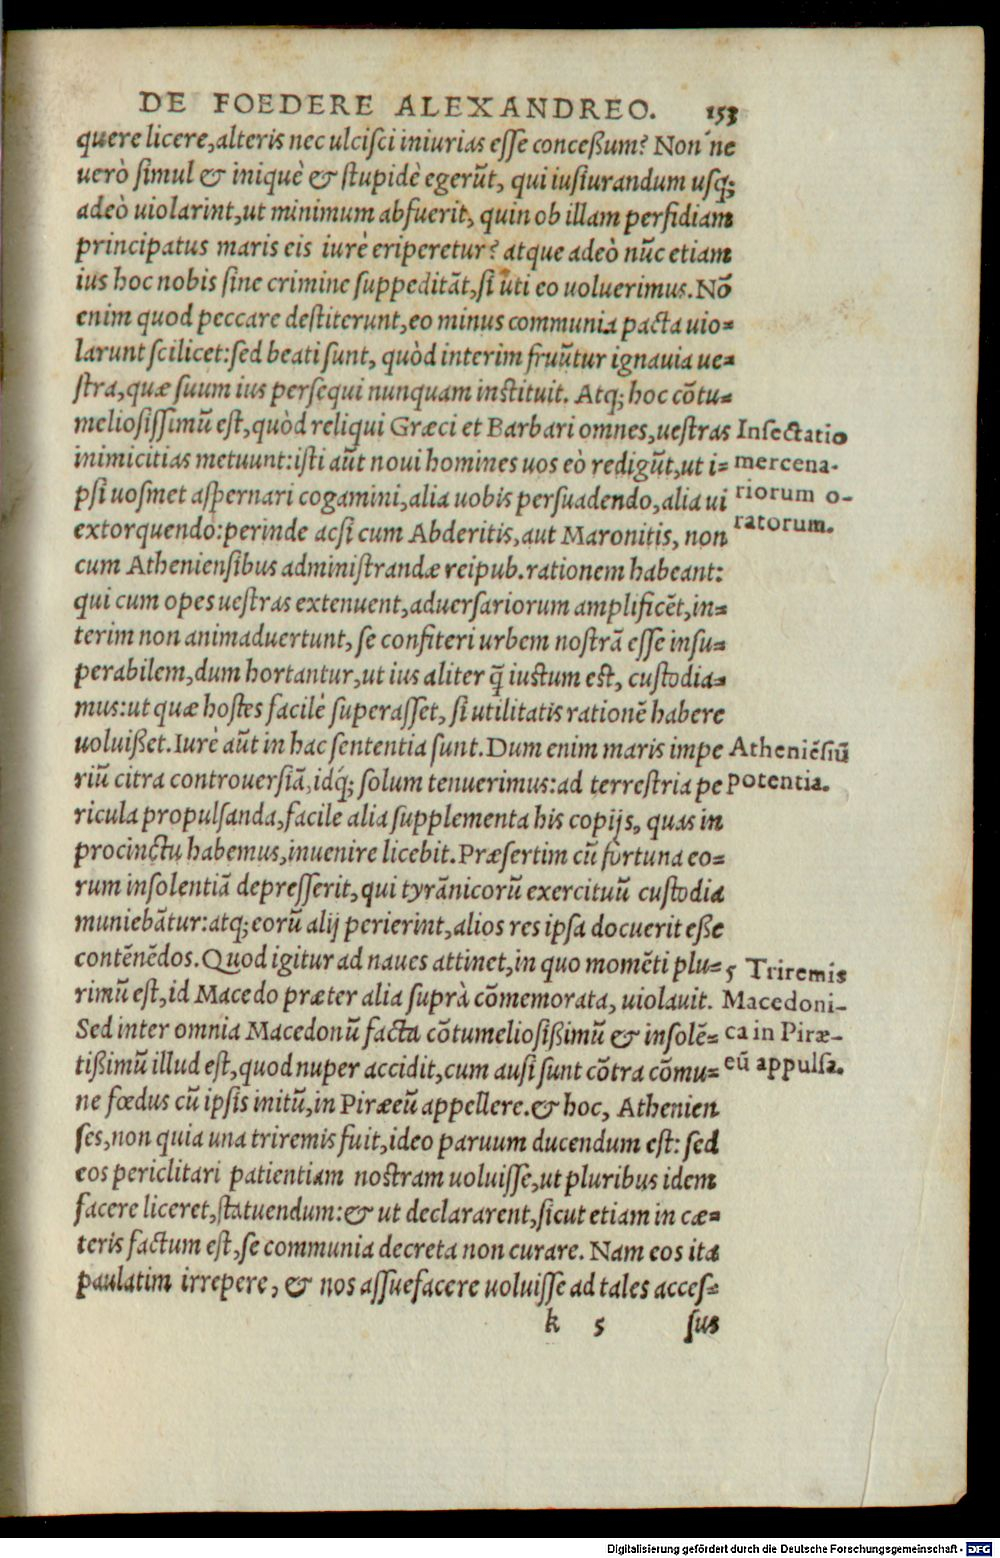 DE FOEDERE ALEXANDREO. 153
quere licere, alteris nec ulcisci iniurias esse conceßum? Non ne
uerò simul & iniquè & stupidè egerūt, qui iusiurandum usq;
adeò uiolarint, ut minimum abfuerit, quin ob illam perfidiam
principatus maris eis iurè eriperetur? atque adeò nūc etiam
ius hoc nobis sine crimine suppeditāt, si uti eo uoluerimus. Nō
enim quod peccare destiterunt, eo minus communia pacta uio-
larunt scilicet: sed beati sunt, quòd interim fruūtur ignauia ue-
stra, quæ suum ius persequi nunquam instituit. Atq; hoc cōtu-
meliosissimū est, quòd reliqui Græci et Barbari omnes, uestras
inimicitias metuunt: isti aūt noui homines uos eò redigūt, ut i-
psi uosmet aspernari cogamini, alia uobis persuadendo, alia ui
extorquendo: perinde acsi cum Abderitis, aut Maronitis, non
cum Atheniensibus administrandæ reipub. rationem habeant:
qui cum opes uestras extenuent, aduersariorum amplificēt, in-
terim non animaduertunt, se confiteri urbem nostrā esse insu-
perabilem, dum hortantur, ut ius aliter q̄ iustum est, custodia-
mus: ut quæ hostes facilè superasset, si utilitatis rationē habere
uoluißet. Iurè aūt in hac sententia sunt. Dum enim maris impe
riū citra controuersiā, idq́; solum tenuerimus: ad terrestria pe
ricula propulsanda, facile alia supplementa his copijs, quas in
procinctu habemus, inuenire licebit. Præsertim cū fortuna eo-
rum insolentiā depresserit, qui tyrānicorū exercituū custodia
muniebātur: atq; eorū alij perierint, alios res ipsa docuerit eße
contēnēdos. Quod igitur ad naues attinet, in quo momēti plu-
rimū est, id Macedo præter alia suprà cōmemorata, uiolauit.
Sed inter omnia Macedonū facta cōtumeliosißimū & insolē-
tißimū illud est, quod nuper accidit, cum ausi sunt cōtra cōmu-
ne fœdus cū ipsis initū, in Piræeū appellere. & hoc, Athenien
ses, non quia una triremis fuit, ideo paruum ducendum est: sed
eos periclitari patientiam nostram uoluisse, ut pluribus idem
facere liceret, statuendum: & ut declararent, sicut etiam in cæ-
teris factum est, se communia decreta non curare. Nam eos ita
paulatim irrepere, & nos assuefacere uoluisse ad tales acces-
k 5 sus
Insectatio
mercena-
riorum o-
ratorum.
Atheniēsiū
potentia.
5 Triremis
Macedoni-
ca in Piræ-
eū appulsa.
Digitalisierung gefördert durch die Deutsche Forschungsgemeinschaft - DFG